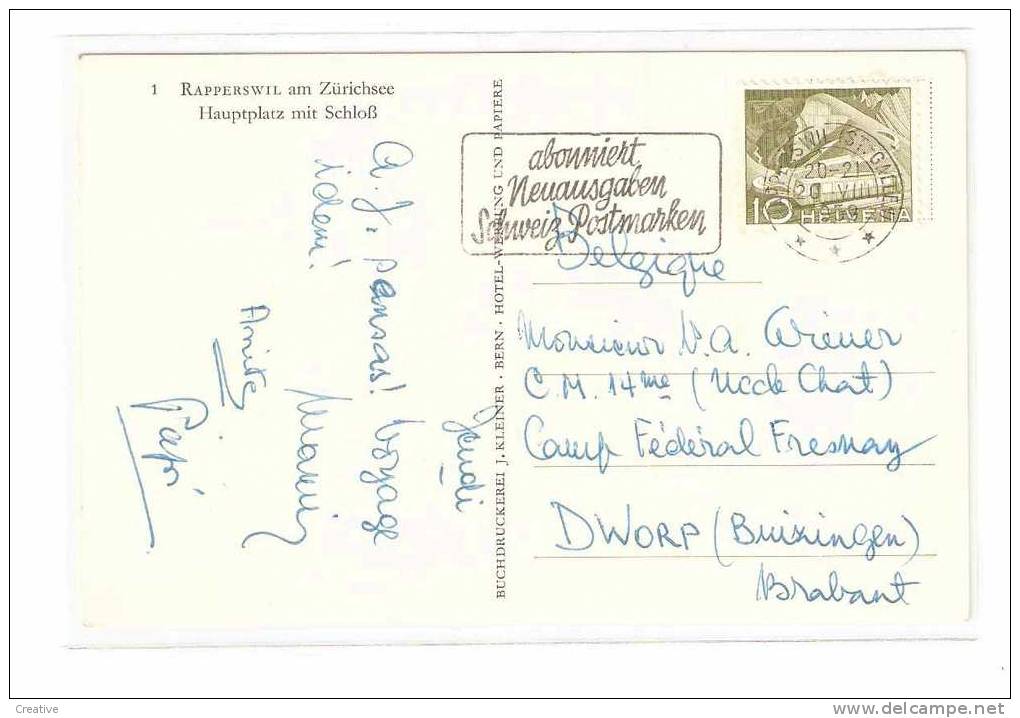 1 RAPPERSWIL am Zürichsee
Hauptplatz mit Schloß
Jeudi
A. J. pansas! Voyage
idem!
Mamy
Amitiés
Papi
BUCHDRUCKEREI J. KLEINER · BERN · HOTEL-WERBUNG UND PAPIERE
abonniert
Neuausgaben
Schweiz Postmarken
10 HELVETIA
RAPPERSWIL (ST. GALLEN)
20-21
VIII
Belgique
Monsieur
C.M. 14me (Uccle Chat)
Camp Fédéral Fresnay
DWORP (Buizingen)
Brabant
Creative
www.delcampe.net